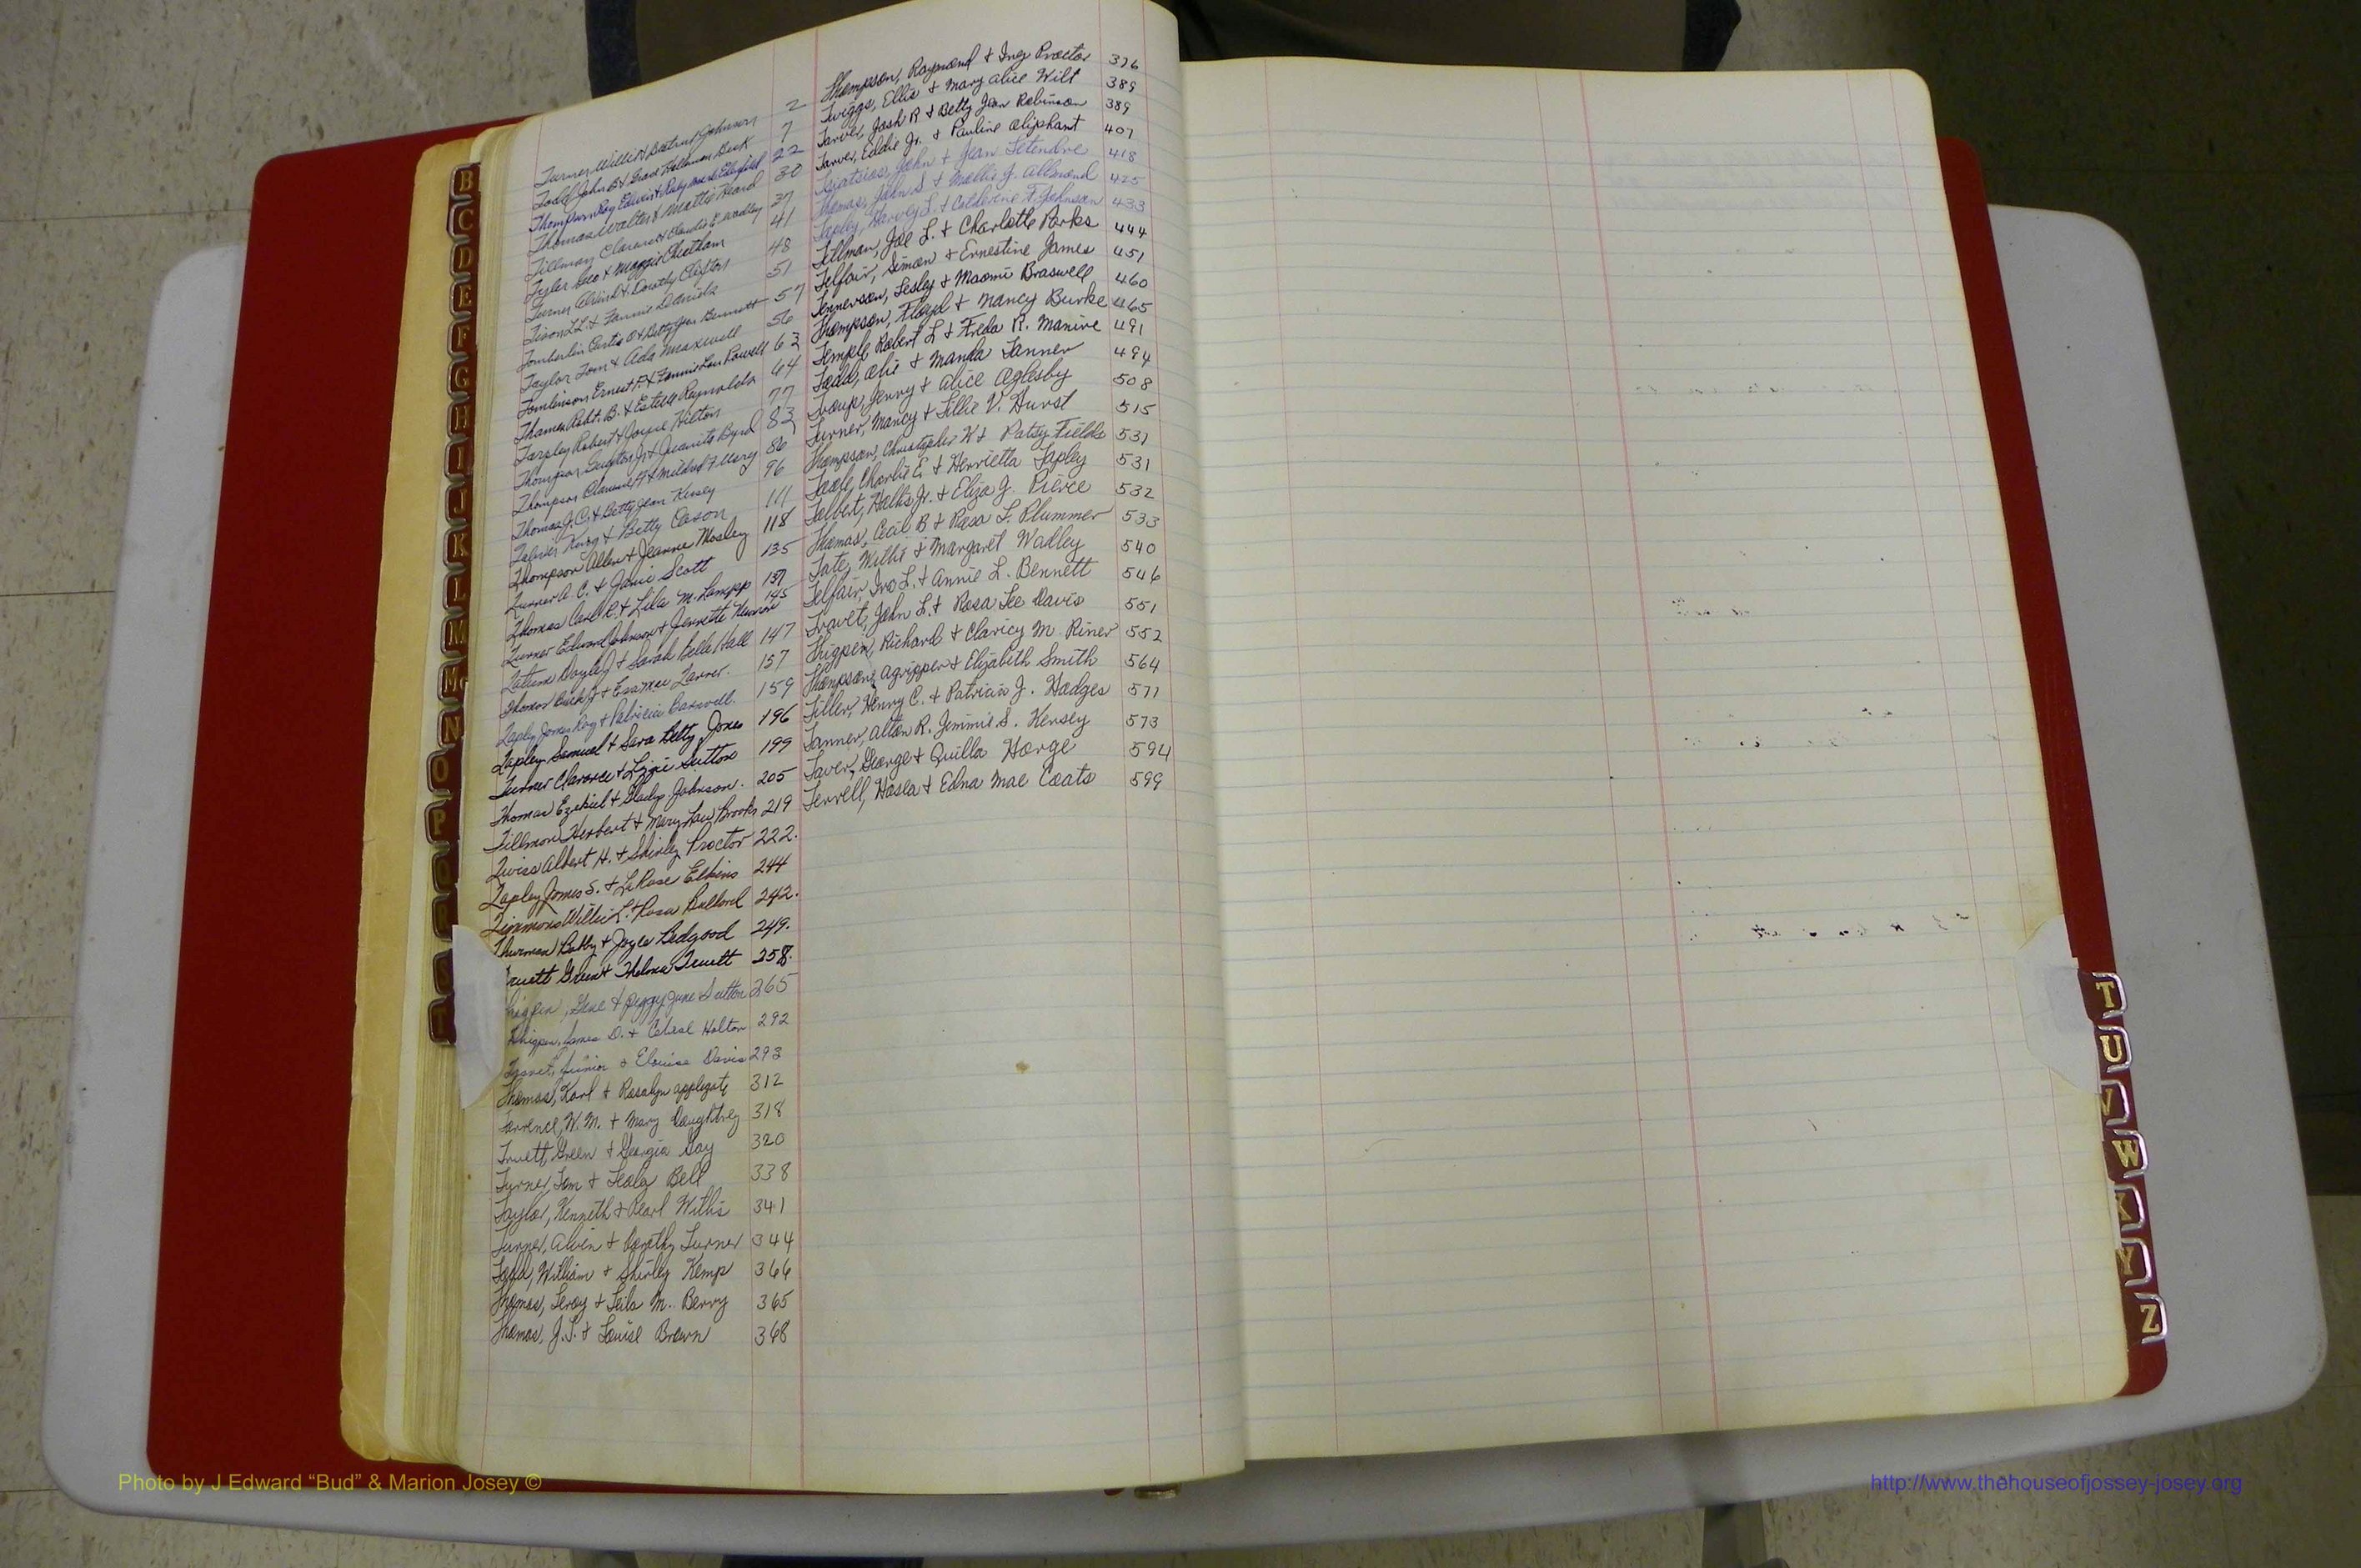 Turner Willie & Beatrice Johnson 2
Todd John B & Grace Holloman Beck 7
Thompson Roy Edwin & Ruby 22
Thomas Walter & Mattie Heard 30
Tillman Clarence & Claudie E. Wadley 37
Tyler Geo & Maggie Cheatham 41
Turner & Dorothy Clifton 48
Tison L.L. & Fannie Daniels 51
Tomberlin Curtis O & Betty Jean Bennett 57
Taylor Tom & Ada Maxwell 56
Tomlinson Ernest P. & Fannie Lou Powell 63
Thames Robt. B. & Estelle Reynolds 64
Tarpley Robert & Joyce Hilton 77
Thompson Jr & Juanita Byrd 83
Thompson Clarence & Mildred F 86
Thomas J.C. & Betty Jean Kersey 96
& Betty Cason 111
Thompson Allen & Jeanne Mosley 118
Turner A. C. & Janie Scott 135
Thomas Carl R. & Lila M. Lampp 137
Turner Edward Johnson & Jennette 145
Tatum Doyle J & Sarah Belle Hall 147
Thomas & Essmae Tanner. 157
Tapley James Roy & Patricia Carswell. 159
Tapley Samuel & Sara Betty Jones 196
Turner Clarence & Lizzie Sutton 199
Thomas Ezekiel & Gladys Johnson. 205
Tillmon Herbert & Mary Lou Brooks 219
Twiss Albert H. & Shirley Proctor 222.
Tapley James S. & LeRose Elkins 244
Timmons Willie L. & Rosa Bulloch 242.
Thurman Bobby & Joyce Bedgood 249.
Truett Green & Thelma Truett 258.
Thigpen, Gene & Peggy June Sutton 265
Thigpen, James D. & Holton 292
Junior & Elouise Davis 293
Thomas, Karl & Rosalyn Applegate 312
Torrence, W.M. & Mary Daughtrey 318
Truett, Green & Georgia Gay 320
Turner, Sam & Bell 338
Taylor, Kenneth & Pearl Willis 341
Turner, Alvin & Dorothy Turner 344
Todd, William & Shirley Kemp 366
Thomas, Leroy & Leila M. Berry 365
Thomas, J.L. & Louise Brown 368
Thompson, Raymond & Inez Proctor 376
Twiggs, Ellis & Mary Alice Wilt 389
Tarver, Josh R & Betty Jean Robinson 389
Tarver, Eddie Jr. & Pauline Oliphant 407
John & Jean Letendre 418
Thomas, John S & Mollie J. Allmond 425
Tapley, Harvey L. & Catherine F. Johnson 433
Tillman, Joe L. & Charlotte Parks 444
Telfair, Simon & Ernestine James 451
Tennerson, Lesley & Maomi Braswell 460
Thompson, Floyd & Nancy Burke 465
Temple Robert L & Freda R. Manire 491
Todd, Olie & Manda Tanner 494
Troup, Jerry & Alice Oglesby 508
Turner, Mancy & Lillie V. Hurst 515
Thompson, Christopher W & Patsy Fields 531
Toole, Charlie E. & Henrietta Tapley 531
Talbert, Hollis Jr. & Eliza J. Pierce 532
Thomas, Cecil B & Rosa L. Plummer 533
Tate, Willie & Margaret Wadley 540
Telfair, Ivo L. & Annie L. Bennett 546
John L. & Rosa Lee Davis 551
Thigpen, Richard & Claricy M. Riner 552
Thompson, Agripper & Elizabeth Smith 564
Tiller, Henry C. & Patrician J. Hodges 571
Tanner, Alton R. Jemmie S. Kersey 573
Taver, George & Quilla Horge 594
Terrell, Hosea & Edna Mae Coats 599
B
C
D
E
F
G
H
I
J
K
L
M
Mc
N
O
P
Q
R
S
T
T
U
V
W
X
Y
Z
Photo by J Edward “Bud” & Marion Josey ©
http://www.thehouseofjossey-josey.org